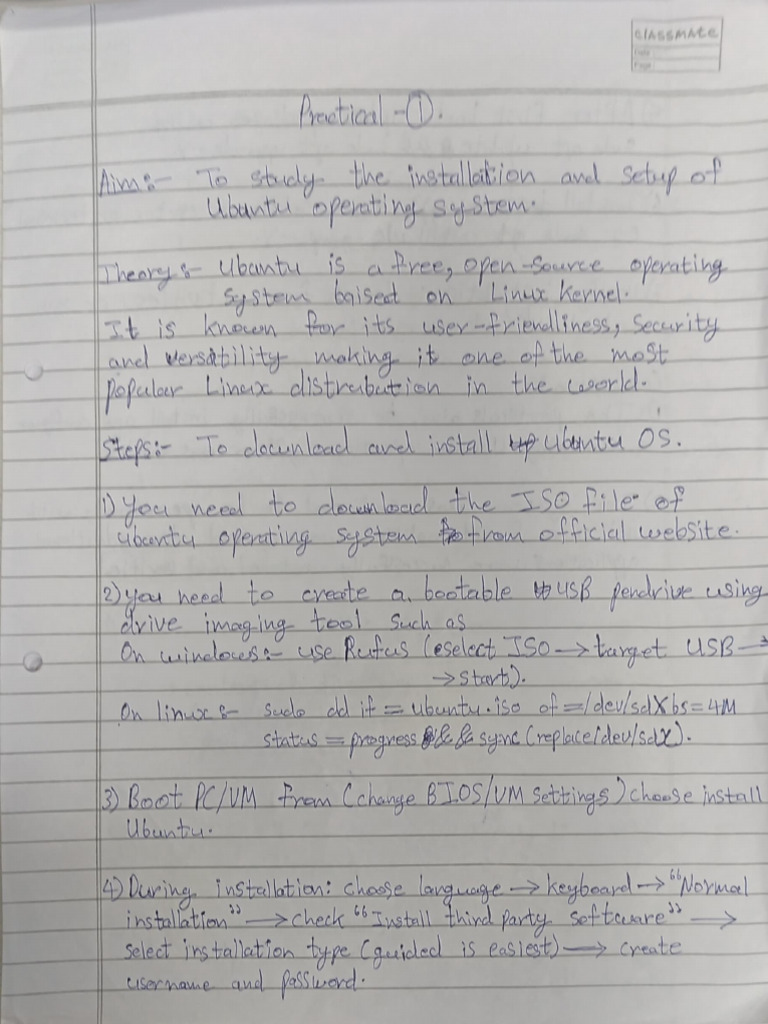 classmate
Date
Page
Practical -①.
Aim:- To study the installation and setup of
Ubuntu operating system.
Theory:- Ubuntu is a free, open-source operating
system baised on Linux Kernel.
It is known for its user-friendliness, security
and versatility making it one of the most
popular Linux distrubution in the world.
Steps:- To download and install Ubuntu OS.
1) You need to download the ISO file of
ubuntu operating system from official website.
2) you need to create a bootable USB pendrive using
drive imaging tool such as
On windows:- use Rufus (eselect ISO → target USB →
→ start).
On linux:- sudo dd if = ubuntu.iso of =/dev/sdX bs=4M
status = progress && sync (replace/dev/sdX).
3) Boot PC/VM from (change BIOS/VM settings) choose install
Ubuntu.
4) During installation: choose language → keyboard → "Normal
installation" → check "Install third party software" →
select installation type (guided is easiest) → create
username and password.